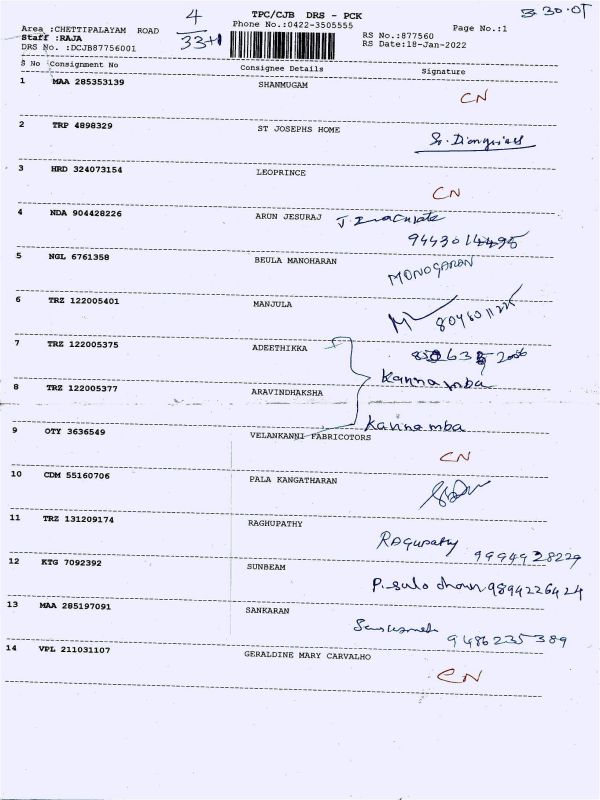 TPC/CJB DRS - PCK
4
33+1
Area :CHETTIPALAYAM ROAD
Phone No.:0422-3505555
Page No.:1
Staff :RAJA
RS No.:877560
DRS No. :DCJB87756001
RS Date:18-Jan-2022
S No Consignment No Consignee Details Signature
1 MAA 285353139 SHANMUGAM
CN
2 TRP 4898329 ST JOSEPHS HOME
3 HRD 324073154 LEOPRINCE
CN
4 NDA 904428226 ARUN JESURAJ
5 NGL 6761358 BEULA MANOHARAN
MONOGARAN
6 TRZ 122005401 MANJULA
7 TRZ 122005375 ADEETHIKKA
Kannamba
8 TRZ 122005377 ARAVINDHAKSHA
Kannamba
9 OTY 3636549 VELANKANNI FABRICOTORS
CN
10 CDM 55160706 PALA KANGATHARAN
11 TRZ 131209174 RAGHUPATHY
Ragupathy 9994928229
12 KTG 7092392 SUNBEAM
9894226424
13 MAA 285197091 SANKARAN
9486235389
14 VPL 211031107 GERALDINE MARY CARVALHO
CN